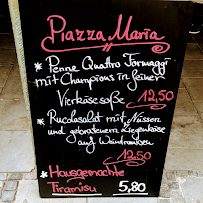 Piazza Maria
* Penne Quattro Formaggi
mit Champions in feiner
Vierkäsesoße 12,50
* Rucolasalat mit Nüssen
und gebratenem Ziegenkäse
auf Weintrauben
12,50
* Hausgemachte
Tiramisu 5,80